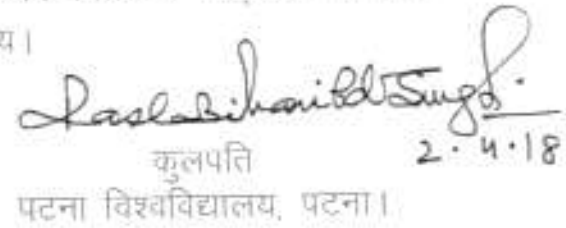 य।
RasbBihariPd Singh.
2.4.18
कुलपति
पटना विश्वविद्यालय, पटना।